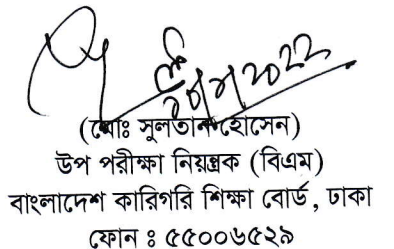 (মোঃ সুলতান হোসেন)
উপ পরীক্ষা নিয়ন্ত্রক (বিএম)
বাংলাদেশ কারিগরি শিক্ষা বোর্ড, ঢাকা
ফোন ঃ ৫৫০০৬৫২৯